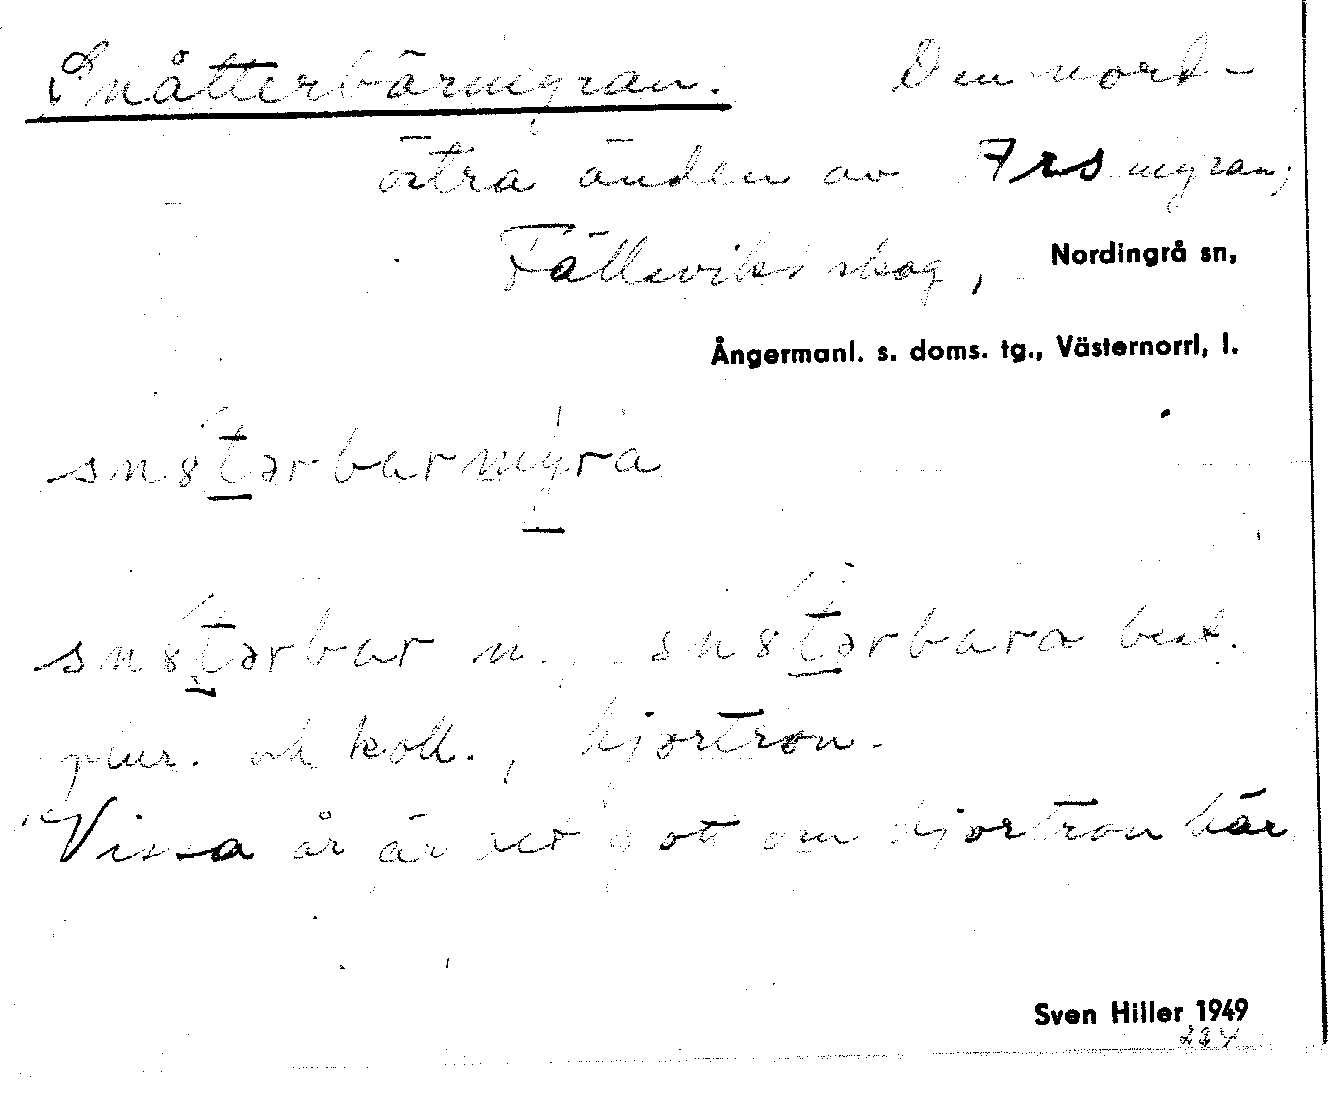 Snåtterbärmyran. Den nord-
östra änden av Arsmyran;
Fällsviks skog, Nordingrå sn,
Ångermanl. s. doms. tg., Västernorrl, l.
sn8tərbarmyra
sn8tərbar n., sn8tərbara best.
plur. och koll., hjortron.
Vissa år är det gott om hjortron här
Sven Hiller 1949
234